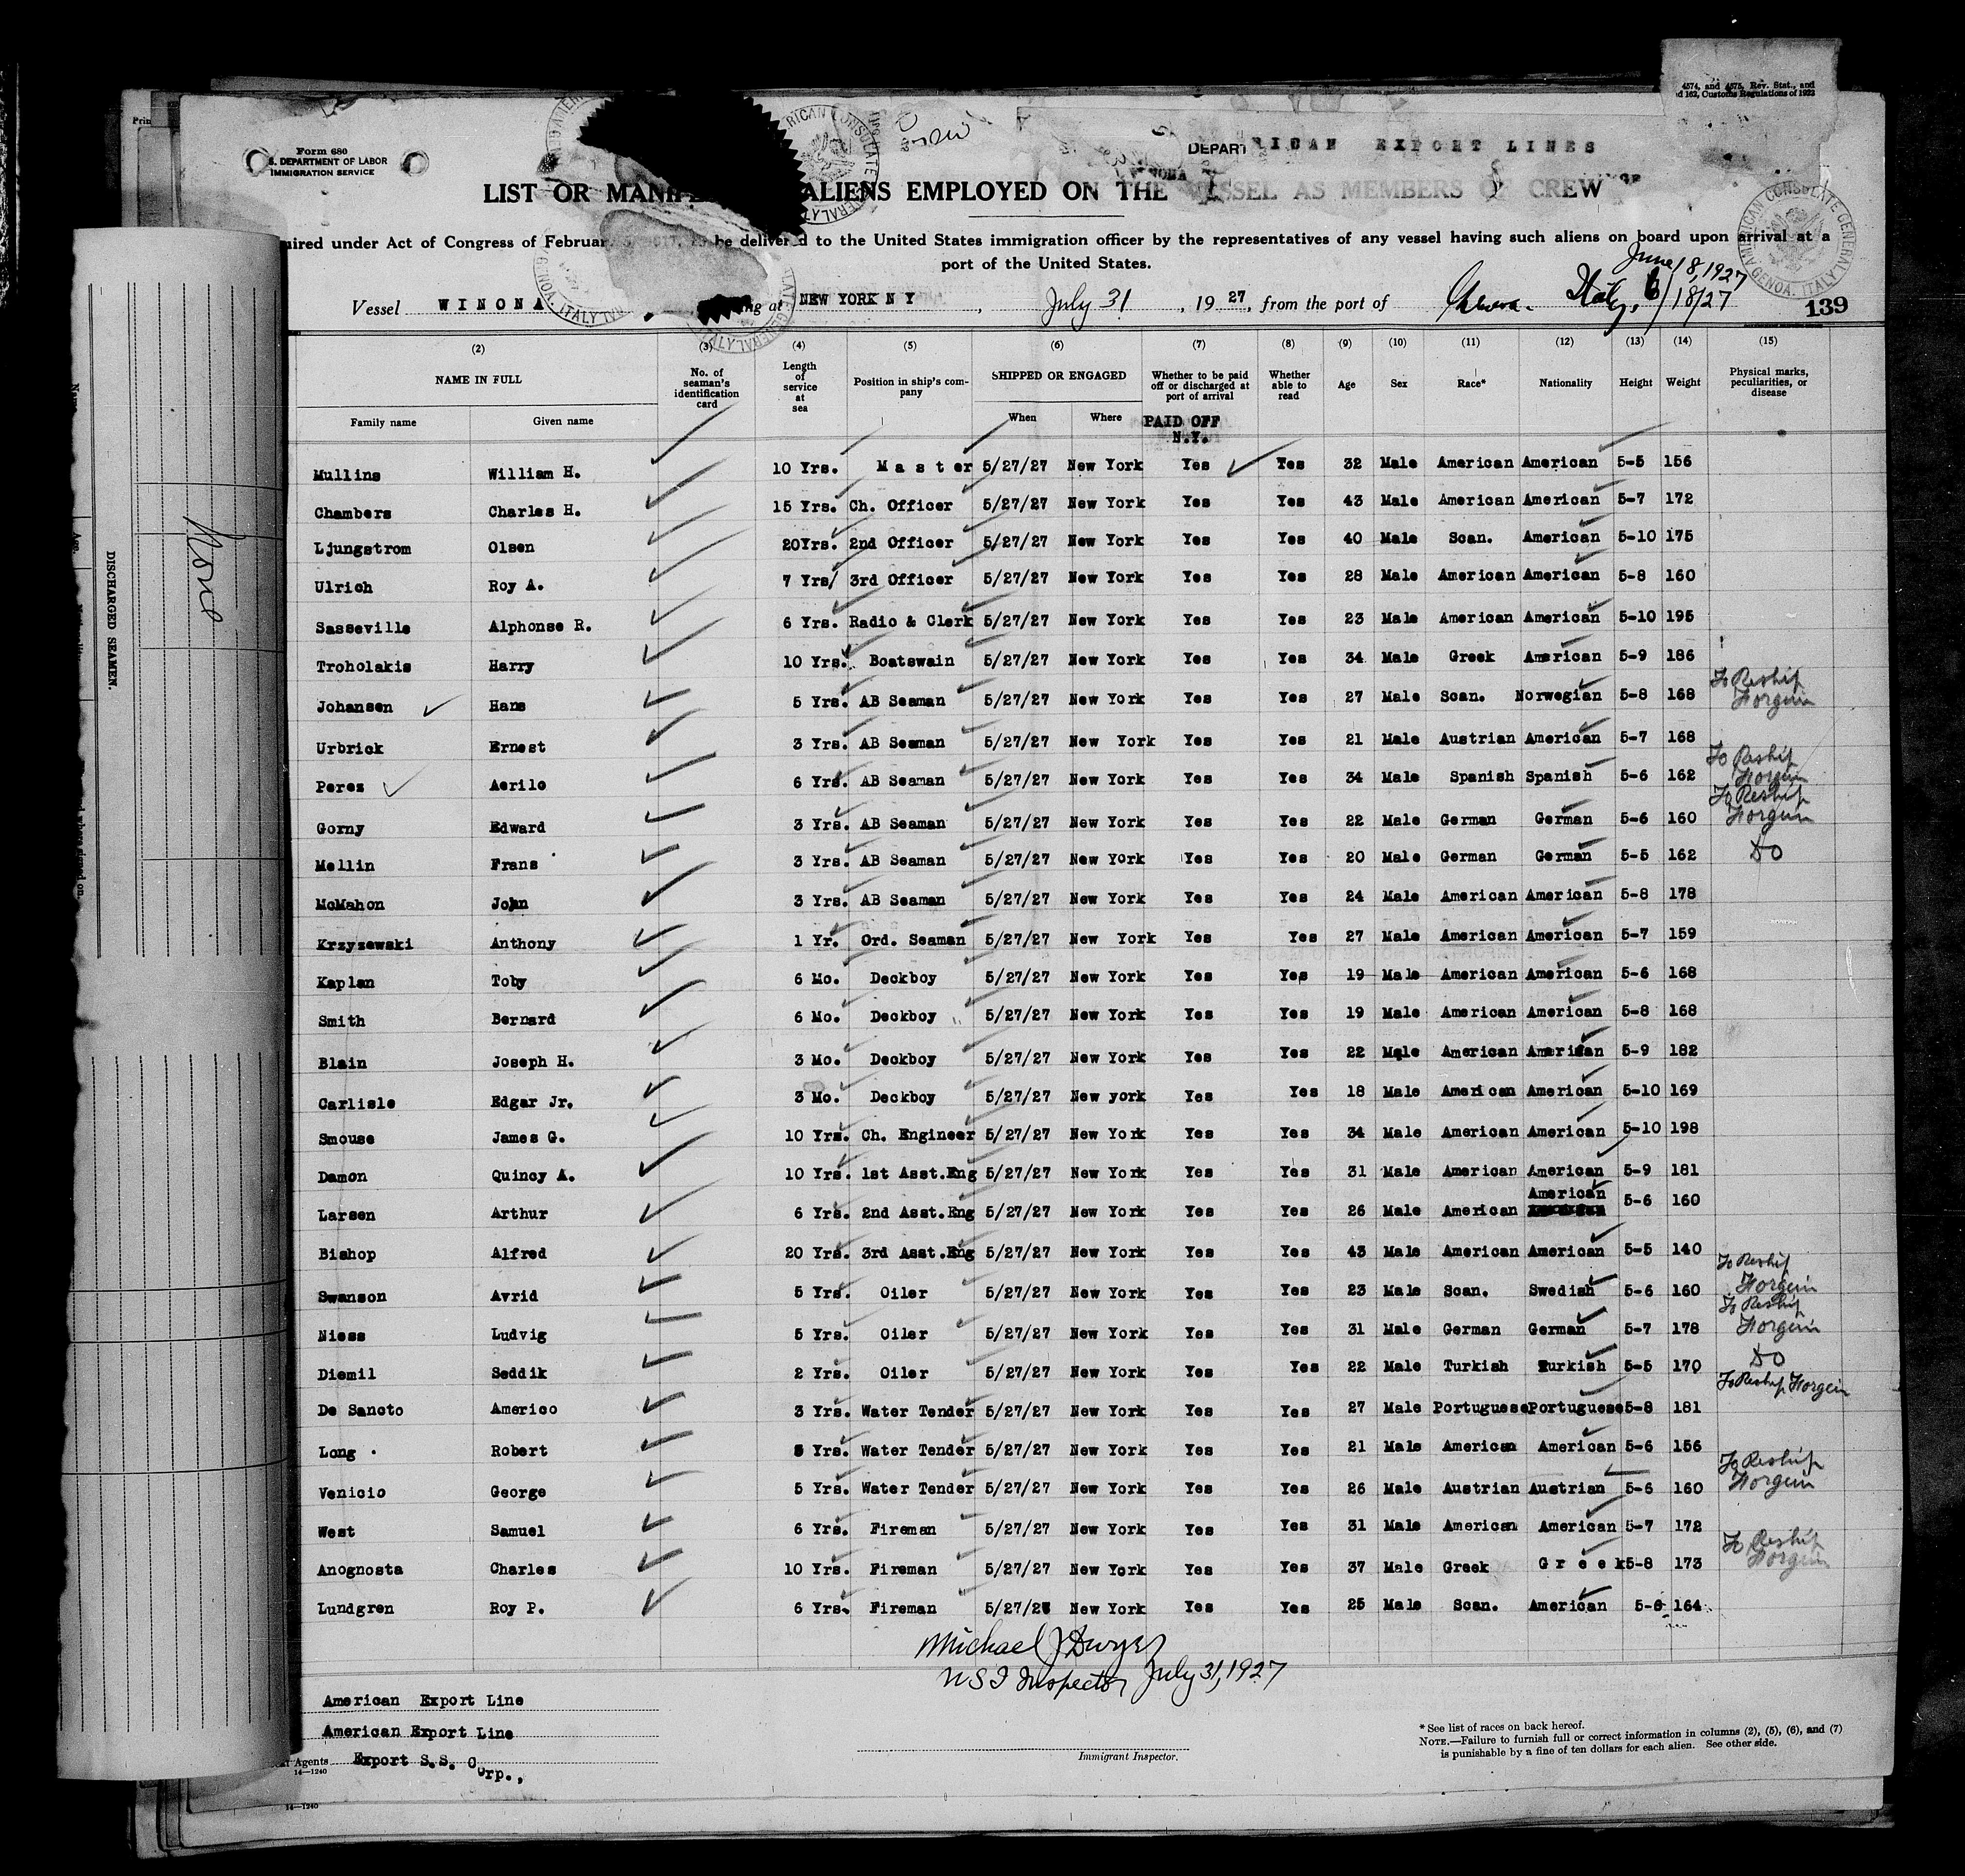 4574, and 4575, Rev. Stat., and
162, Customs Regulations of 1923
Form 680
S. DEPARTMENT OF LABOR
IMMIGRATION SERVICE
AMERICAN EXPORT LINES
LIST OR MANIFEST ALIENS EMPLOYED ON THE VESSEL AS MEMBERS OF CREW
uired under Act of Congress of February be delivered to the United States immigration officer by the representatives of any vessel having such aliens on board upon arrival at a
port of the United States.
June 18, 1927
Vessel WINONA ng at NEW YORK N Y, July 31, 1927, from the port of Genoa. Italy, 6/18/27
139
(2) (3) (4) (5) (6) (7) (8) (9) (10) (11) (12) (13) (14) (15)
NAME IN FULL No. of seaman's identification card Length of service at sea Position in ship's company SHIPPED OR ENGAGED Whether to be paid off or discharged at port of arrival Whether able to read Age Sex Race* Nationality Height Weight Physical marks, peculiarities, or disease
Family name Given name When Where PAID OFF N.Y.
Mullins William H. 10 Yrs. Master 5/27/27 New York Yes Yes 32 Male American American 5-5 156
Chambers Charles H. 15 Yrs. Ch. Officer 5/27/27 New York Yes Yes 43 Male American American 5-7 172
Ljungstrom Olsen 20Yrs. 2nd Officer 5/27/27 New York Yes Yes 40 Male Scan. American 5-10 175
Ulrich Roy A. 7 Yrs/ 3rd Officer 5/27/27 New York Yes Yes 28 Male American American 5-8 160
Sasseville Alphonse R. 6 Yrs. Radio & Clerk 5/27/27 New York Yes Yes 23 Male American American 5-10 195
Troholakis Harry 10 Yrs. Boatswain 5/27/27 New York Yes Yes 34 Male Greek American 5-9 186
Johansen Hans 5 Yrs. AB Seaman 5/27/27 New York Yes Yes 27 Male Scan. Norwegian 5-8 168 To Reship Forgein
Urbrick Ernest 3 Yrs. AB Seaman 5/27/27 New York Yes Yes 21 Male Austrian American 5-7 168
Peres Aerilo 6 Yrs. AB Seaman 5/27/27 New York Yes Yes 34 Male Spanish Spanish 5-6 162 To Reship Forgein
Gorny Edward 3 Yrs. AB Seaman 5/27/27 New York Yes Yes 22 Male German German 5-6 160 To Reship Forgein
Mellin Frans 3 Yrs. AB Seaman 5/27/27 New York Yes Yes 20 Male German German 5-5 162 DO
McMahon John 3 Yrs. AB Seaman 5/27/27 New York Yes Yes 24 Male American American 5-8 178
Krzyzewski Anthony 1 Yr. Ord. Seaman 5/27/27 New York Yes Yes 27 Male American American 5-7 159
Kaplan Toby 6 Mo. Deckboy 5/27/27 New York Yes Yes 19 Male American American 5-6 168
Smith Bernard 6 Mo. Deckboy 5/27/27 New York Yes Yes 19 Male American American 5-8 168
Blain Joseph H. 3 Mo. Deckboy 5/27/27 New York Yes Yes 22 Male American American 5-9 182
Carlisle Edgar Jr. 3 Mo. Deckboy 5/27/27 New york Yes Yes 18 Male American American 5-10 169
Smouse James G. 10 Yrs. Ch. Engineer 5/27/27 New York Yes Yes 34 Male American American 5-10 198
Damon Quincy A. 10 Yrs. 1st Asst.Eng 5/27/27 New York Yes Yes 31 Male American American 5-9 181
Larsen Arthur 6 Yrs. 2nd Asst.Eng 5/27/27 New York Yes Yes 26 Male American American 5-6 160
Bishop Alfred 20 Yrs. 3rd Asst.Eng 5/27/27 New York Yes Yes 43 Male American American 5-5 140
Swanson Avrid 5 Yrs. Oiler 5/27/27 New York Yes Yes 23 Male Scan. Swedish 5-6 160 To Reship Forgein
Niess Ludvig 5 Yrs. Oiler 5/27/27 New York Yes Yes 31 Male German German 5-7 178 To Reship Forgein
Diemil Seddik 2 Yrs. Oiler 5/27/27 New York Yes Yes 22 Male Turkish Turkish 5-5 170 DO
De Sancto Americo 3 Yrs. Water Tender 5/27/27 New York Yes Yes 27 Male Portuguese Portuguese 5-8 181 To Reship Forgein
Long Robert 5 Yrs. Water Tender 5/27/27 New York Yes Yes 21 Male American American 5-6 156
Venicio George 5 Yrs. Water Tender 5/27/27 New York Yes Yes 26 Male Austrian Austrian 5-6 160 To Reship Forgein
West Samuel 6 Yrs. Fireman 5/27/27 New York Yes Yes 31 Male American American 5-7 172
Anognosta Charles 10 Yrs. Fireman 5/27/27 New York Yes Yes 37 Male Greek Greek 5-8 173 To Reship Forgein
Lundgren Roy P. 6 Yrs. Fireman 5/27/27 New York Yes Yes 25 Male Scan. American 5-6 164
Michael J Dwyer
USI Inspector July 31, 1927
American Export Line
American Export Line
Agents Export S.S. Corp.,
14-1240
Immigrant Inspector.
* See list of races on back hereof.
NOTE.—Failure to furnish full or correct information in columns (2), (5), (6), and (7)
is punishable by a fine of ten dollars for each alien. See other side.
14-1240
DISCHARGED SEAMEN.
None